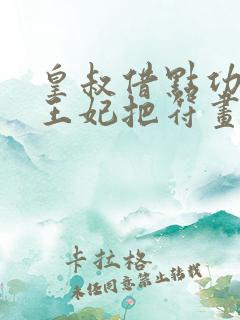 皇叔借點功
王妃把符畫
卡拉格
未經同意禁止轉載